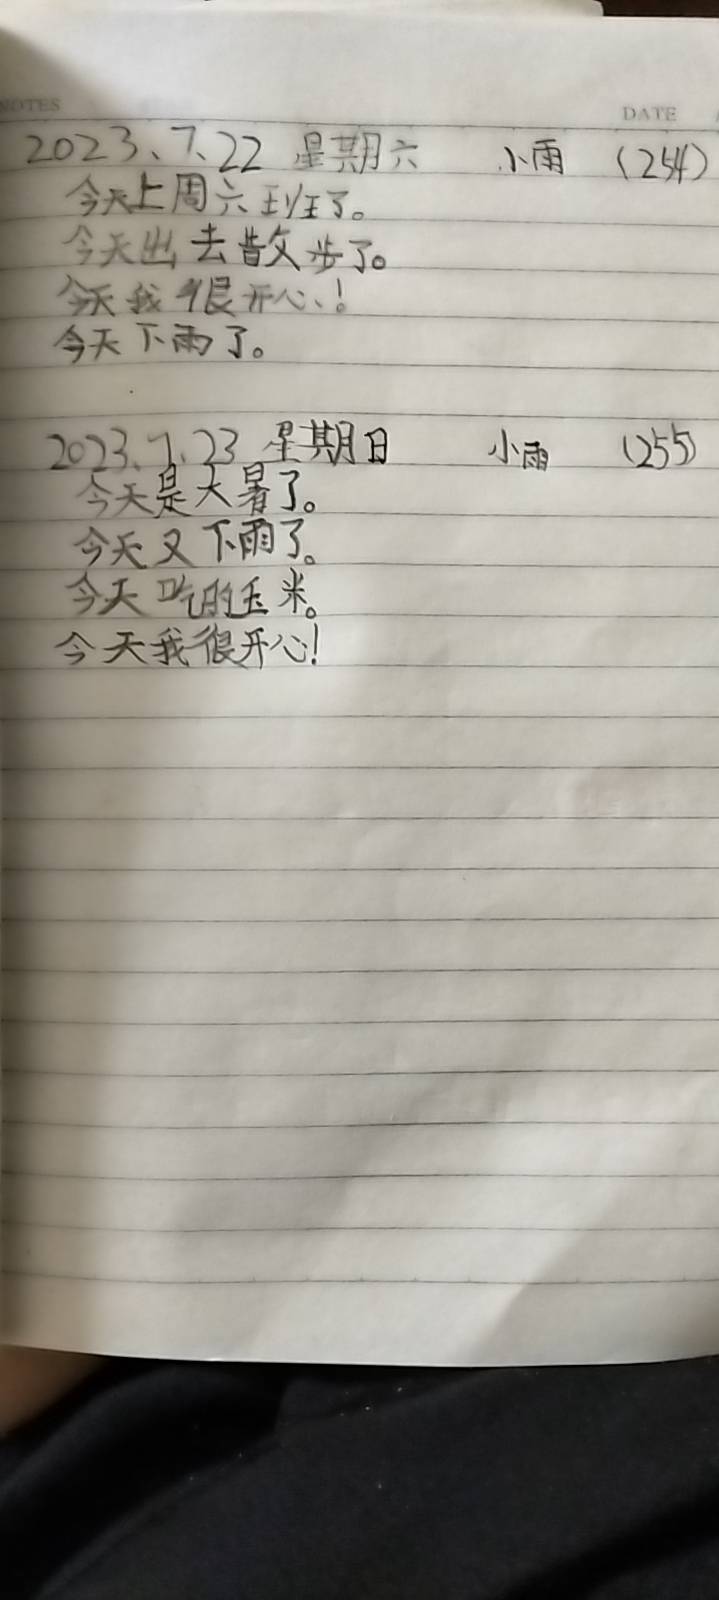 NOTES
DATE
2023、7、22 星期六 小雨 (254)
今天上周六班了。
今天出去散步了。
今天我很开心、!
今天下雨了。
2023、7、23 星期日 小雨 (255)
今天是大暑了。
今天又下雨了。
今天吃的玉米。
今天我很开心!